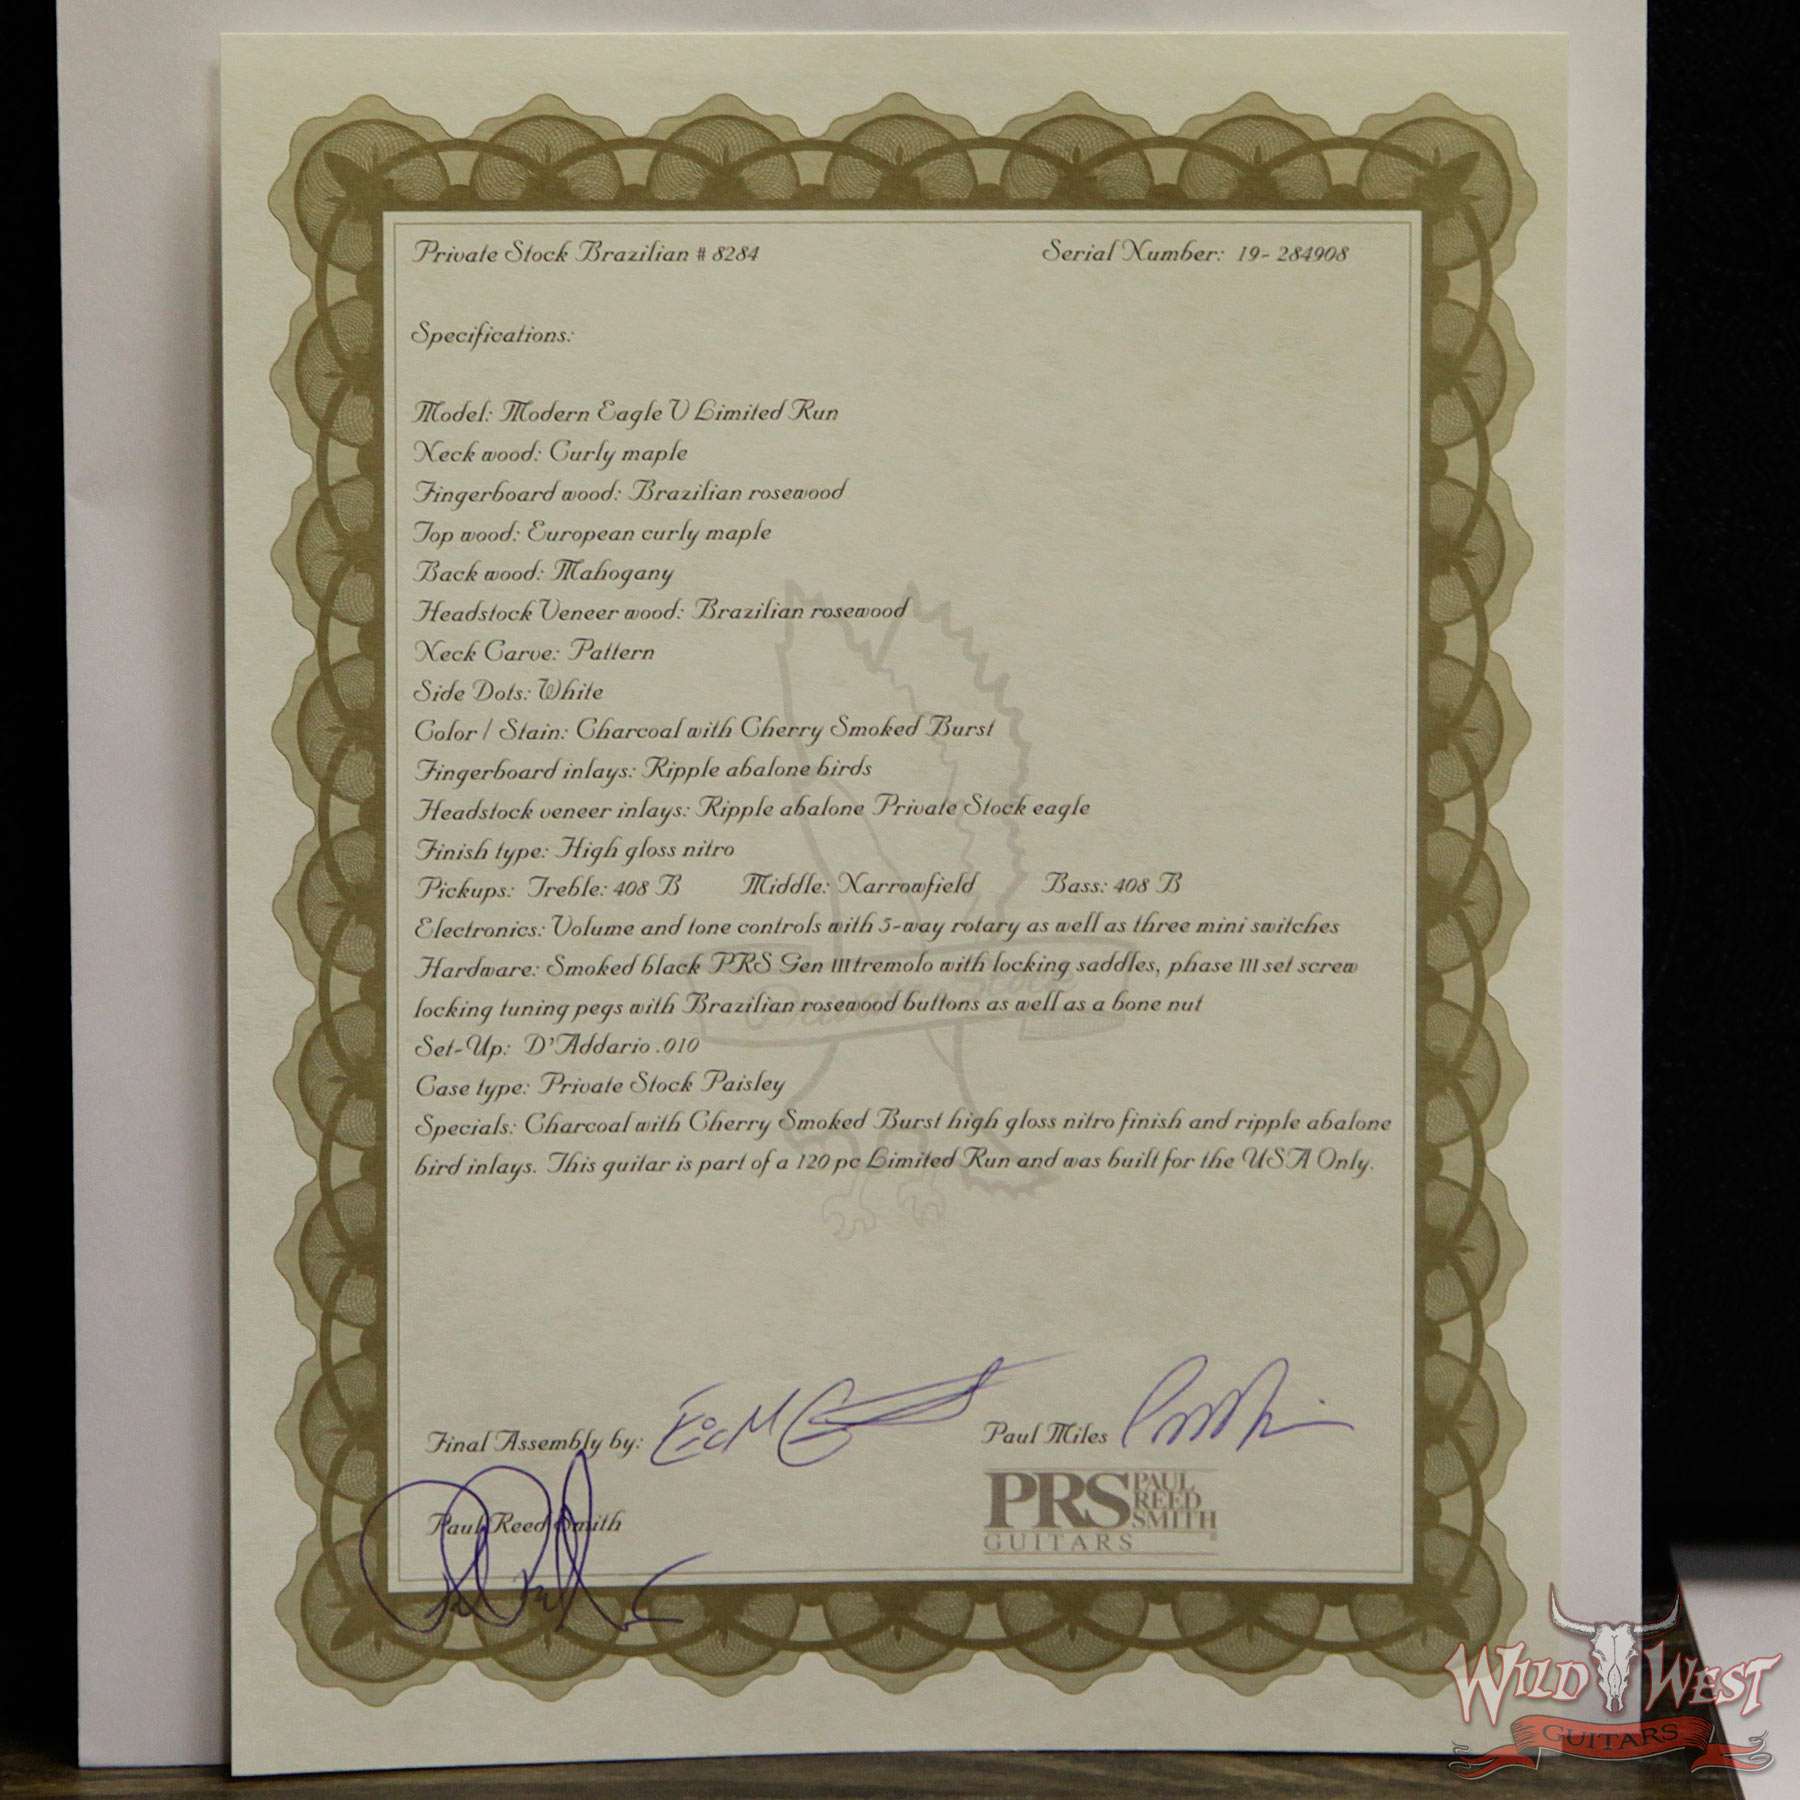 Private Stock Brazilian # 8284 Serial Number: 19- 284908
Specifications:
Model: Modern Eagle V Limited Run
Neck wood: Curly maple
Fingerboard wood: Brazilian rosewood
Top wood: European curly maple
Back wood: Mahogany
Headstock Veneer wood: Brazilian rosewood
Neck Carve: Pattern
Side Dots: White
Color / Stain: Charcoal with Cherry Smoked Burst
Fingerboard inlays: Ripple abalone birds
Headstock veneer inlays: Ripple abalone Private Stock eagle
Finish type: High gloss nitro
Pickups: Treble: 408 B Middle: Narrowfield Bass: 408 B
Electronics: Volume and tone controls with 5-way rotary as well as three mini switches
Hardware: Smoked black PRS Gen III tremolo with locking saddles, phase III set screw
locking tuning pegs with Brazilian rosewood buttons as well as a bone nut
Set-Up: D'Addario .010
Case type: Private Stock Paisley
Specials: Charcoal with Cherry Smoked Burst high gloss nitro finish and ripple abalone
bird inlays. This guitar is part of a 120 pc Limited Run and was built for the USA Only.
Final Assembly by: Paul Miles
Paul Reed Smith
PRS PAUL REED SMITH
GUITARS
WILD WEST
GUITARS